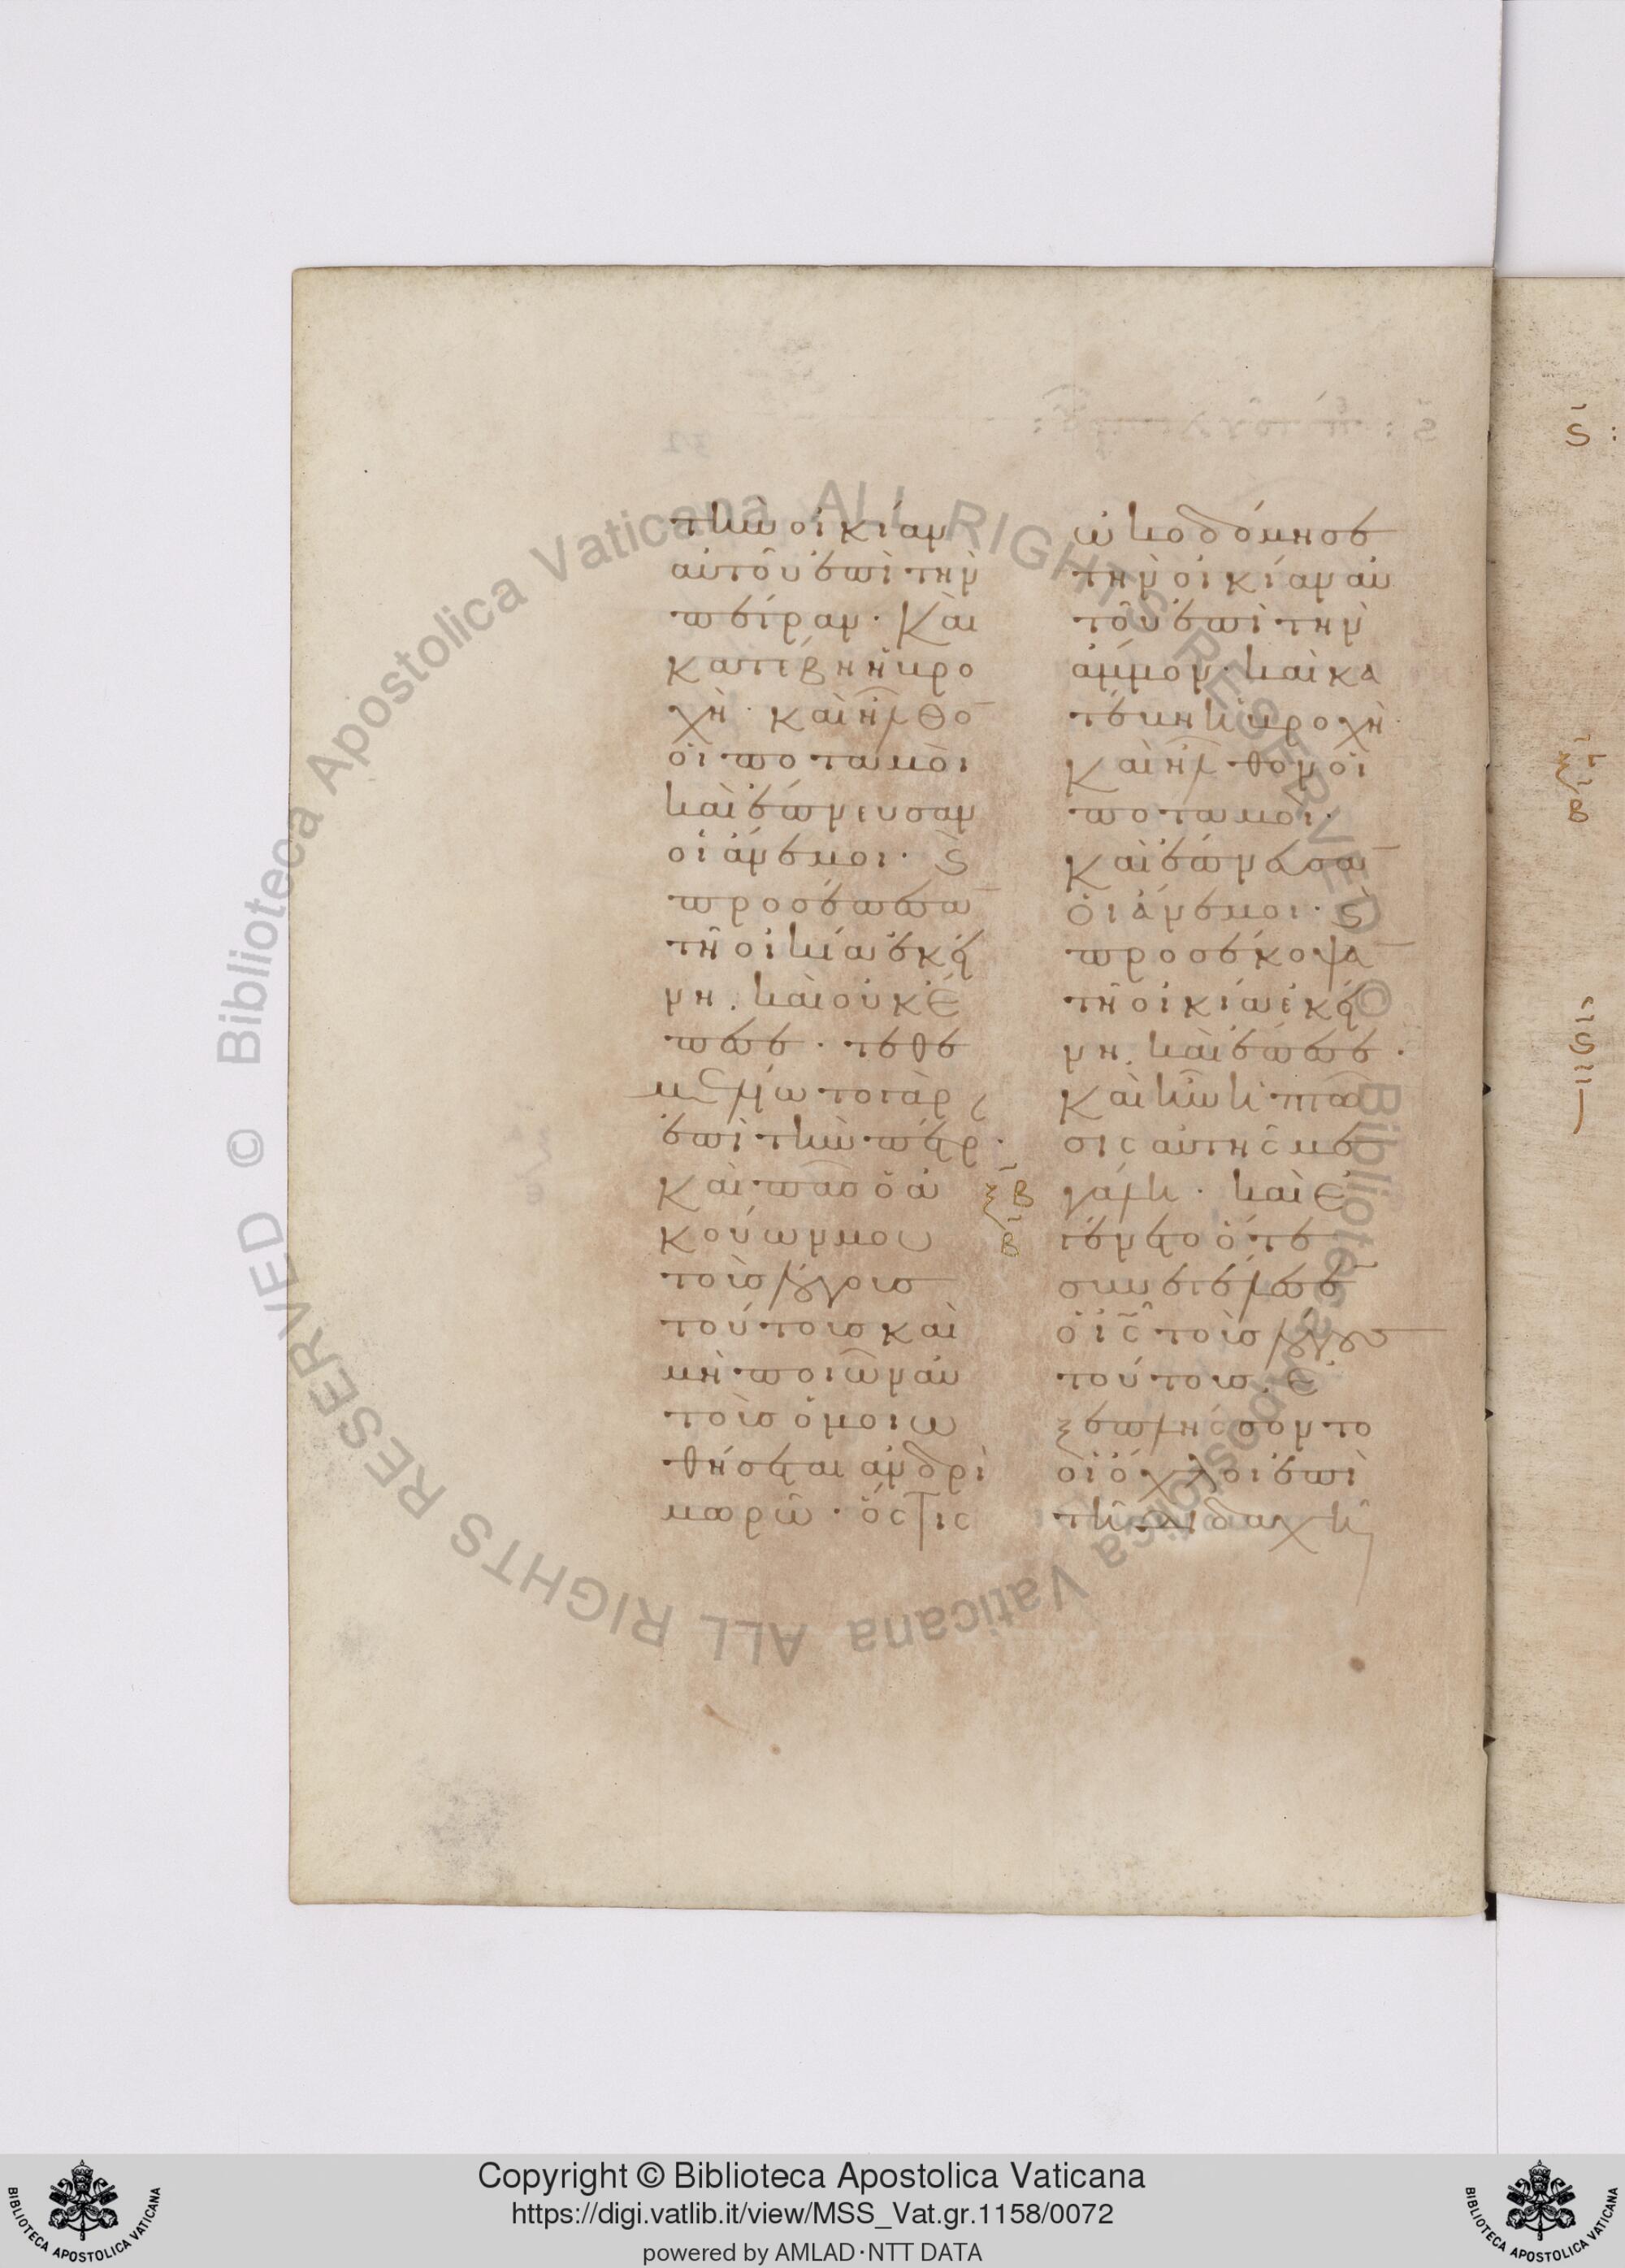 τὴν οἰκίαν
αὐτοῦ ἐπὶ τὴν
πέτραν· Καὶ
κατέβη ἡ βρο
χὴ· καὶ ἦλθο̄
οἱ ποταμοὶ
καὶ ἔπνευσαν
οἱ ἄνεμοι· ϛ̀
προσέπεσō
τῆ οἰκία ἐκεί
νη. καὶ οὐκ ἔ
πεσε· τεθε
μελίωτο γὰρ
ἐπὶ τὴν πέτρ·
Καὶ πᾶσ ὁ ἀ
κούων μου
τοὺσ λόγουσ
τούτουσ καὶ
μὴ ποιῶν αὐ
τοὺσ ὁμοιω
θήσεται ἀνδρὶ
μωρῶ· ὅστις
ξ̄β
β̄
ὠκοδόμησε
τὴν οἰκίαν αὐ
τοῦ ἐπὶ τὴν
ἄμμον· καὶ κα
τέβη ἡ βροχὴ·
Καὶ ἦλθον οἱ
ποταμοὶ·
Καὶ ἔπνευσᾱ
Οἱ ἄνεμοι· ϛ̀
προσέκοψᾱ
τῆ οἰκία ἐκεί
νη. καὶ ἔπεσε·
Καὶ ἦν ἡ πτῶ
σις αὐτῆς με
γάλη· καὶ Ἐ
γένετο ὅτε
συνετέλεσε̄
ὁ ῑς̄ τοὺσ λόγουσ
τούτουσ. Ἐ
ξεπλήσσοντο
οἱ ὄχλοι ἐπὶ
τῆ διδαχῆ
Copyright © Biblioteca Apostolica Vaticana
https://digi.vatlib.it/view/MSS_Vat.gr.1158/0072
powered by AMLAD·NTT DATA